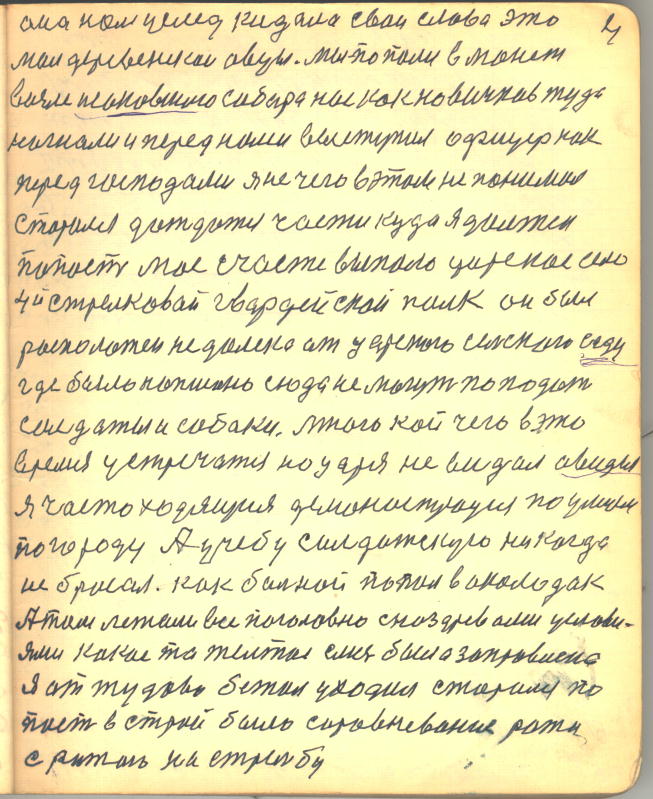 4
она нам у след кидала свои слова это
мои деревенскои овцы. мы попали в манеж
возле исаковского собора нас как новичков туда
нагнали и перед нами выступил офицер как
перед господами я не чего в этом не понимал
старался дождатся части куда я должен
попасть мое счасте выпало царское село
4й стрелковай гвардейской полк он был
расположен не далека от царского сельского саду
где было написано сюда не могут поподать
солдаты и собаки. много кой чего в это
время устречатся но царя не видал а видел
я часто ходящия демонострация по улицам
по городу А учебу солдатскую никогда
не бросал. как балной попал в околодак
А там лежали все поголовно с ноздревами условиями
какое та желтое была заправлена
я от тудово бежал уходил старался по
пасть в строй было соровневание рота
с ротою на стрелбу